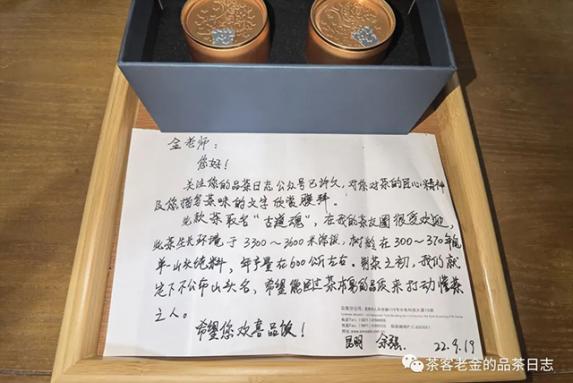 金老师：
您好！
关注您的品茶日志公众号已许久，对您对茶的匠心精神
及您描写茶味的文字欣赏膜拜。
此款茶取名“古道魂”，在我的茶友圈很受欢迎，
此茶生长环境于3300～3600米海拔，树龄在300～370年的
单一山头纯料，年产量在600公斤左右。制茶之初，我们就
先不公布山头名，希望能通过茶本身的品质来打动懂茶
之人。
希望您欢喜品饮！
昆明
22.9.19
茶客老金的品茶日志